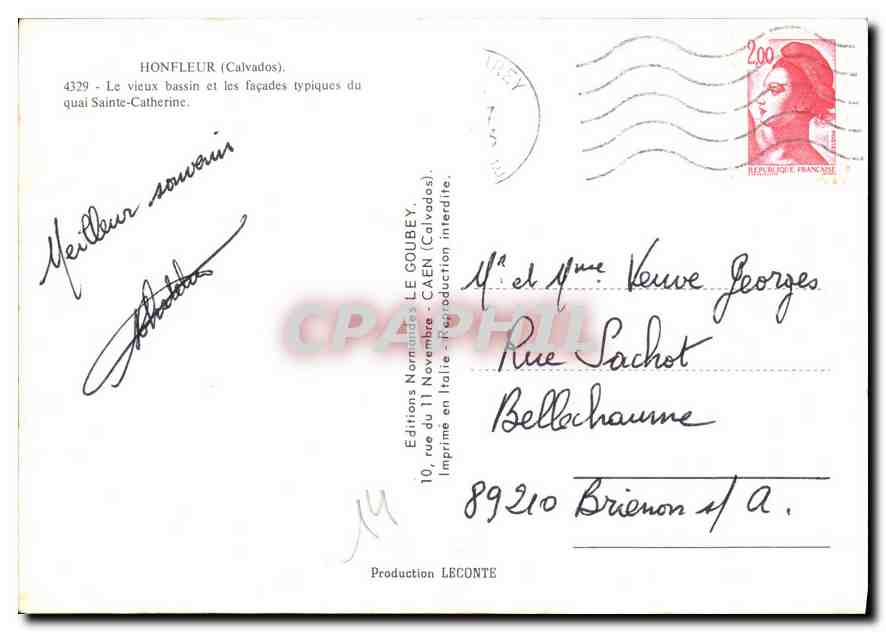 HONFLEUR (Calvados).
4329 - Le vieux bassin et les façades typiques du
quai Sainte-Catherine.
Meilleur souvenir
Editions Normandes LE GOUBEY.
10, rue du 11 Novembre - CAEN (Calvados).
Imprimé en Italie - Reproduction interdite.
2,00
REPUBLIQUE FRANÇAISE
Mr et Mme Veuve Georges
Rue Sachot
Bellechaume
89210 Brienon s/ A.
14
Production LECONTE
CPAPHIL